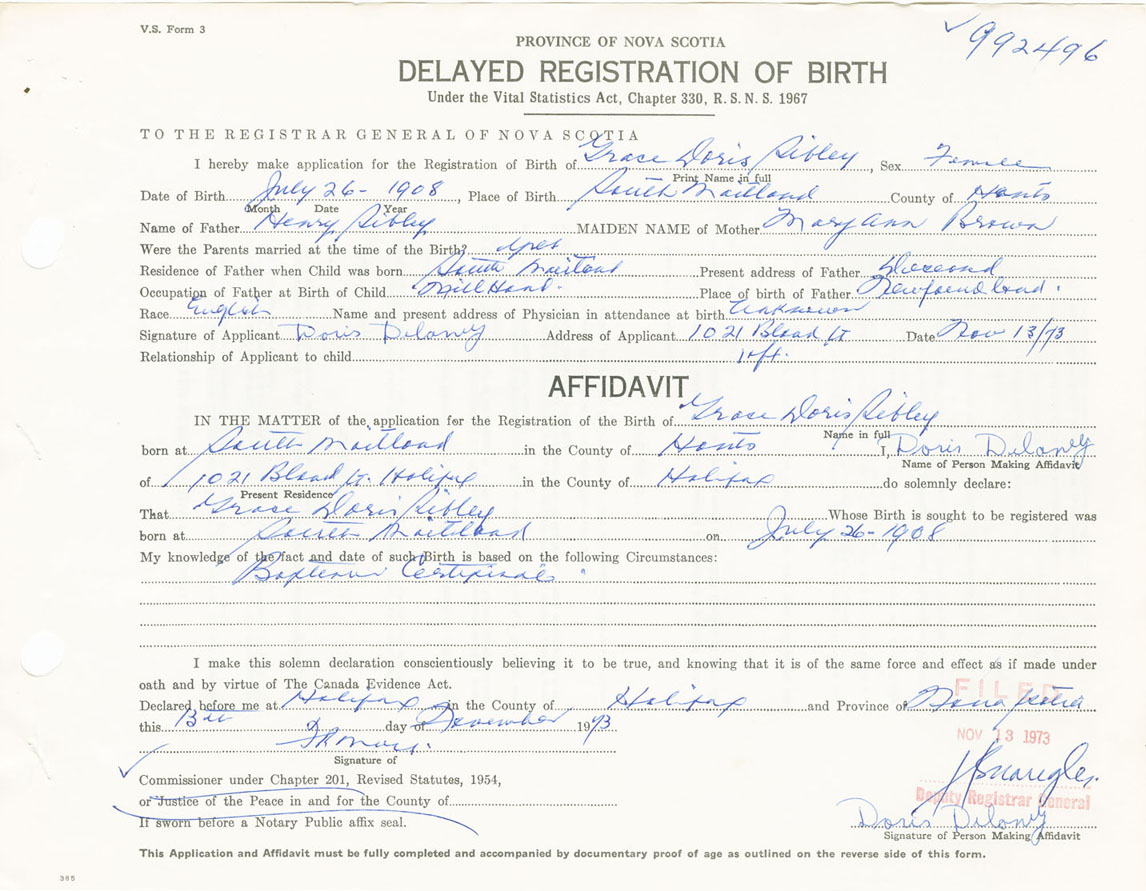 V.S. Form 3
992496
PROVINCE OF NOVA SCOTIA
DELAYED REGISTRATION OF BIRTH
Under the Vital Statistics Act, Chapter 330, R. S. N. S. 1967
TO THE REGISTRAR GENERAL OF NOVA SCOTIA
I hereby make application for the Registration of Birth of Grace Doris Sibley, Sex Female
Print Name in full
Date of Birth July 26 - 1908, Place of Birth South Maitland County of Hants
Month Date Year
Name of Father Henry Sibley MAIDEN NAME of Mother Mary Ann Brown
Were the Parents married at the time of the Birth?
Residence of Father when Child was born South Maitland Present address of Father
Occupation of Father at Birth of Child Mill Hand. Place of birth of Father Newfoundland.
Race English Name and present address of Physician in attendance at birth Unknown
Signature of Applicant Doris Delaney Address of Applicant 1021 Bland St Date Nov 13/73
Hfx.
Relationship of Applicant to child
AFFIDAVIT
IN THE MATTER of the application for the Registration of the Birth of Grace Doris Sibley
Name in full
born at South Maitland in the County of Hants I, Doris Delaney
Name of Person Making Affidavit
of 1021 Bland St. Halifax in the County of Halifax do solemnly declare:
Present Residence
That Grace Doris Sibley Whose Birth is sought to be registered was
born at South Maitland on July 26 - 1908
My knowledge of the fact and date of such Birth is based on the following Circumstances:
Baptism Certificate
I make this solemn declaration conscientiously believing it to be true, and knowing that it is of the same force and effect as if made under
oath and by virtue of The Canada Evidence Act.
FILED
Declared before me at Halifax in the County of Halifax and Province of Nova Scotia
this 13th day of November 1973
NOV 13 1973
Signature of
Commissioner under Chapter 201, Revised Statutes, 1954,
or Justice of the Peace in and for the County of
Deputy Registrar General
If sworn before a Notary Public affix seal.
Doris Delaney
Signature of Person Making Affidavit
This Application and Affidavit must be fully completed and accompanied by documentary proof of age as outlined on the reverse side of this form.
385